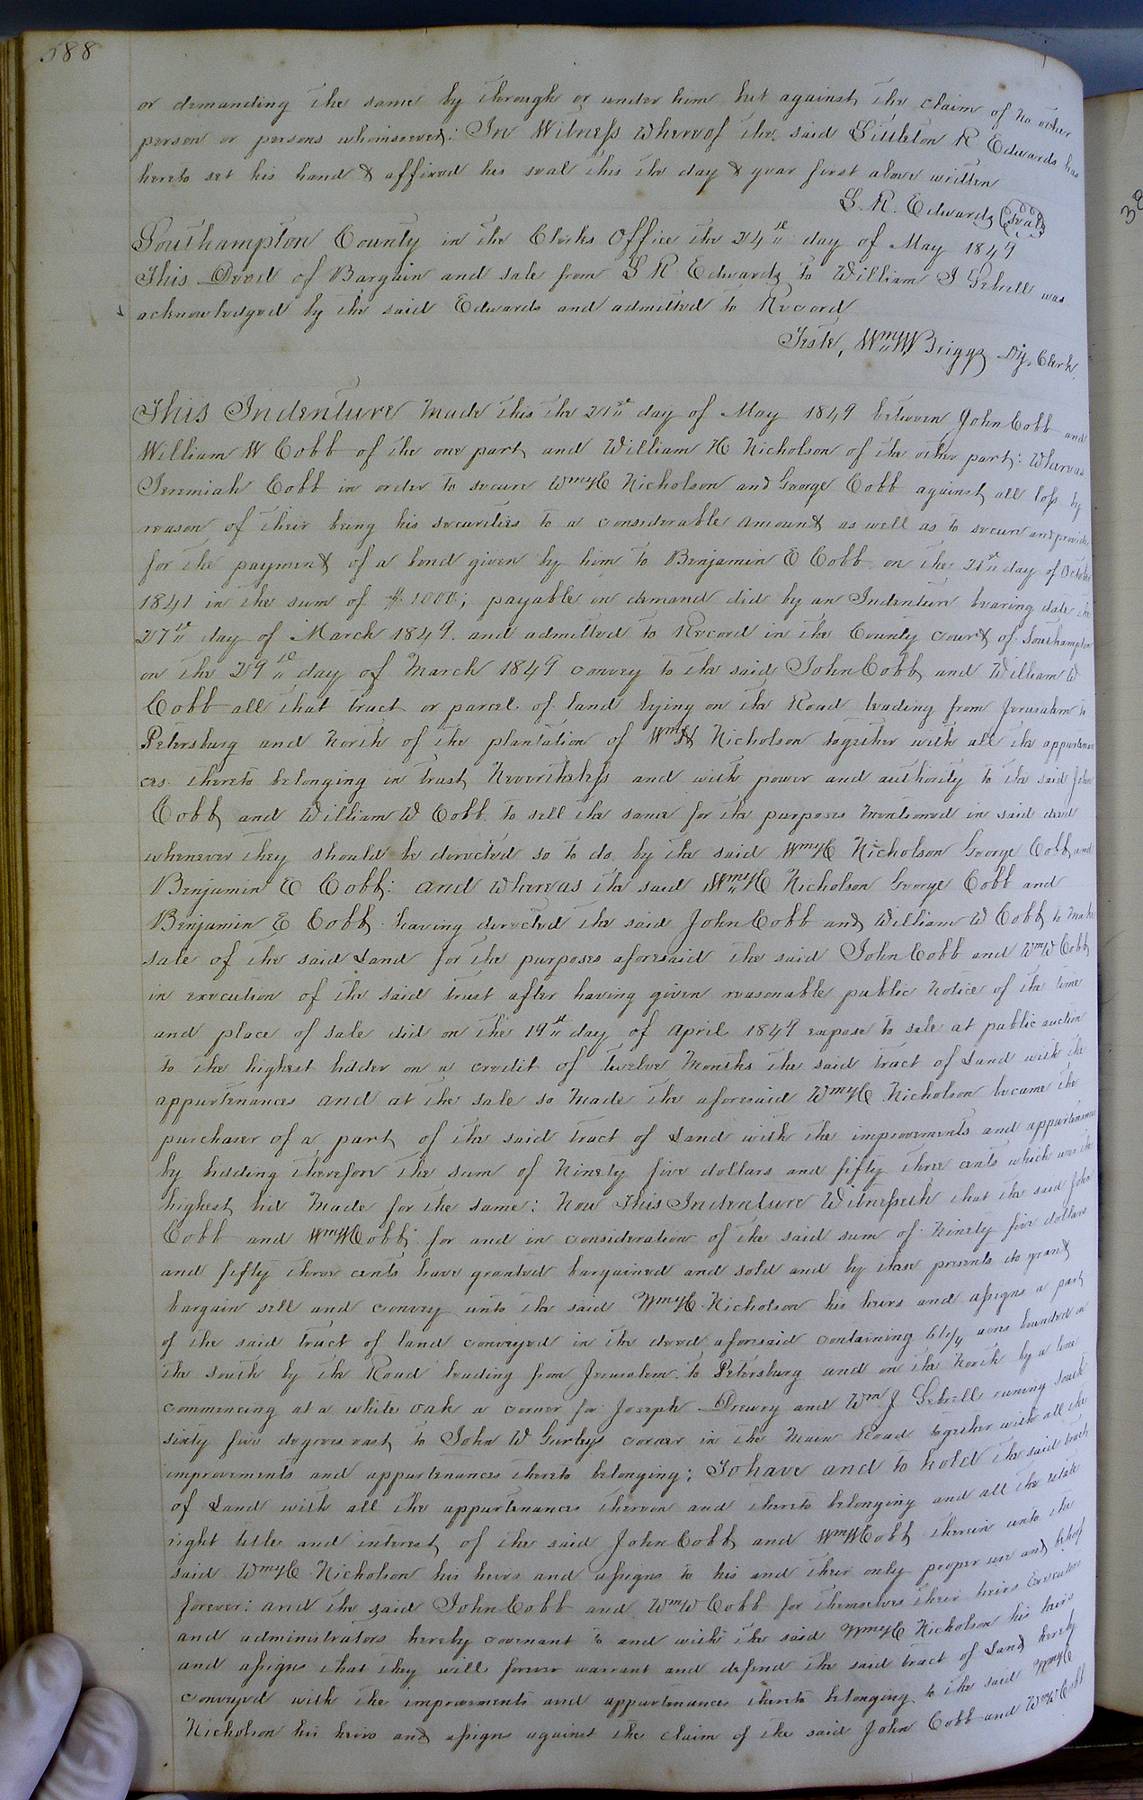 588
or demanding the same by through or under him but against the claim of no other
person or persons whomsoever: In Witness whereof the said Littleton R Edwards has
hereto set his hand & affixed his seal this the day & year first above written
L. R. Edwards (Seal)
Southampton County in the Clerks Office the 24th day of May 1849
This Deed of Bargain and sale from L R Edwards to William J Sebrell was
acknowledged by the said Edwards and admitted to Record
Teste, Wm W Briggs Dy. Clerk
This Indenture Made this the 21st day of May 1849 between John Cobb and
William W Cobb of the one part and William H Nicholson of the other part: Whereas
Jeremiah Cobb in order to secure Wm H Nicholson and George Cobb against all loss by
reason of their being his securities to a considerable amount as well as to secure and provide
for the payment of a bond given by him to Benjamin E Cobb on the 21st day of October
1841 in the sum of $1000; payable on demand did by an Indenture bearing date the
27th day of March 1849. and admitted to Record in the County court of Southampton
on the 29th day of March 1849 convey to the said John Cobb and William W
Cobb all that tract or parcel of land lying on the Road leading from Jerusalem to
Petersburg and North of the plantation of Wm H Nicholson together with all the appurtenan
ces thereto belonging in trust Nevertheless and with power and authority to the said John
Cobb and William W Cobb to sell the same for the purposes mentioned in said deed
whenever they should be directed so to do by the said Wm H Nicholson George Cobb and
Benjamin E Cobb: and whereas the said Wm H Nicholson George Cobb and
Benjamin E Cobb having directed the said John Cobb and William W Cobb to make
sale of the said Land for the purposes aforesaid the said John Cobb and Wm W Cobb
in execution of the said trust after having given reasonable public Notice of the time
and place of sale did on the 19th day of April 1849 expose to sale at public auction
to the highest bidder on a credit of twelve Months the said tract of Land with the
appurtenances and at the sale so Made the aforesaid Wm H Nicholson became the
purchaser of a part of the said tract of Land with the improvements and appurtenances
by bidding therefore the sum of Ninety five dollars and fifty three cents which was the
highest bid Made for the same: Now This Indenture Witnesseth that the said John
Cobb and Wm W Cobb for and in consideration of the said sum of Ninety five dollars
and fifty three cents have granted bargained and sold and by these presents do grant
bargain sell and convey unto the said Wm H Nicholson his heirs and assigns a part
of the said tract of land conveyed in the deed aforesaid containing acres bounded on
the south by the Road leading from Jerusalem to Petersburg and on the North by a line
commencing at a white oak a corner for Joseph Drewry and Wm J Sebrell runing South
sixty five degrees east to John W Gurleys corner in the Main Road together with all the
improvements and appurtenances thereto belonging; To have and to hold the said tract
of Land with all the appurtenances thereon and thereto belonging and all the estate
right title and interest of the said John Cobb and Wm W Cobb therein unto the
said Wm H Nicholson his heirs and assigns to his and their only proper use and behoof
forever: and the said John Cobb and Wm W Cobb for themselves their heirs Executors
and administrators hereby covenant to and with the said Wm H Nicholson his heirs
and assigns that they will forever warrant and defend the said tract of Land hereby
conveyed with the improvements and appurtenances thereto belonging to the said Wm H
Nicholson his heirs and assigns against the claim of the said John Cobb and Wm W Cobb